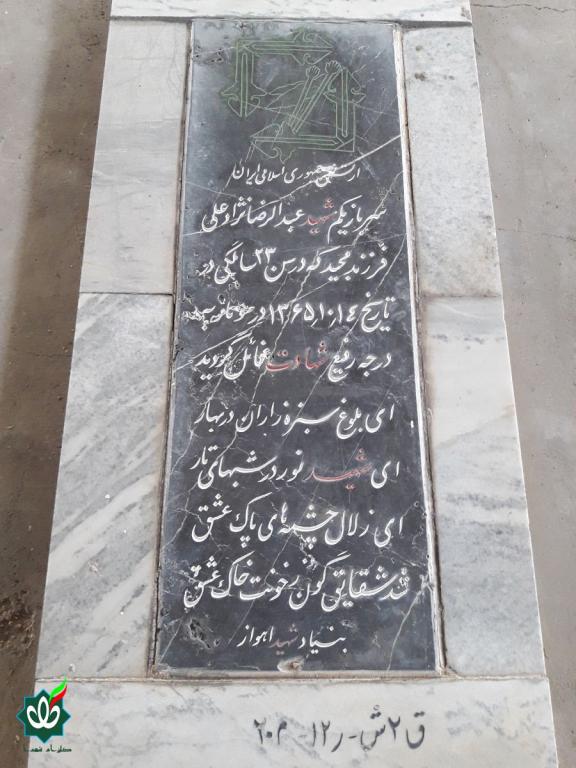 ارتش جمهوری اسلامی ایران
سرباز یکم شهید عبدالرضا نژاد علی
فرزند مجید که در سن ۲۳ سالگی در
تاریخ ۱۳۶۵٫۱۰٫۱٤ در سومار به
درجه رفیع شهادت نائل گردید
ای بلوغ سبزه زاران در بهار
ای شهید نور در شبهای تار
ای زلال چشمه های پاک عشق
شد شقایق گون ز خونت خاک عشق
بنیاد شهید اهواز
ق ۲ ش - ر ۱۲ -
گلزار شهدا